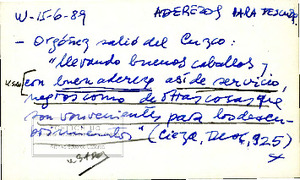 W-15-6-89 ADEREZOS PARA
- Orgóñez salió del Cuzco:
"llevando buenos caballos y
con buen aderezo así de servicio,
negros como de otras cosas que
son convenientes para los descu-
brimientos" (Cieza, 925)